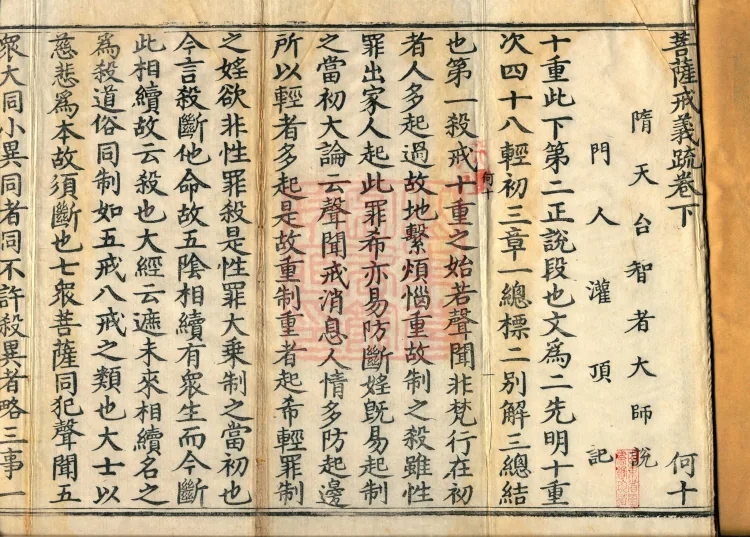 菩薩戒義疏卷下 何十
隋天台智者大師說
門人灌頂記
十重此下第二正說段也文為二先明十重
次四十八輕初三章一總標二別解三總結
何十
也第一殺戒十重之始若聲聞非梵行在初
者人多起過故地繫煩惱重故制之殺雖性
罪出家人起此罪希亦易防斷婬旣易起制
之當初大論云聲聞戒消息人情多防起邊
所以輕者多起是故重制重者起希輕罪制
之婬欲非性罪殺是性罪大乗制之當初也
今言殺斷他命故五陰相續有衆生而今斷
此相續故云殺也大經云遮未來相續名之
為殺道俗同制如五戒八戒之類也大士以
慈悲為本故須斷也七衆菩薩同犯聲聞五
衆大同小異同者同不許殺異者略三事一